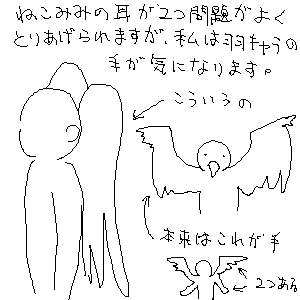 ねこみみの耳が2つ問題がよく
とりあげられますが、私は羽キャラの
手が気になります。
こういうの
本来はこれが手
2つある